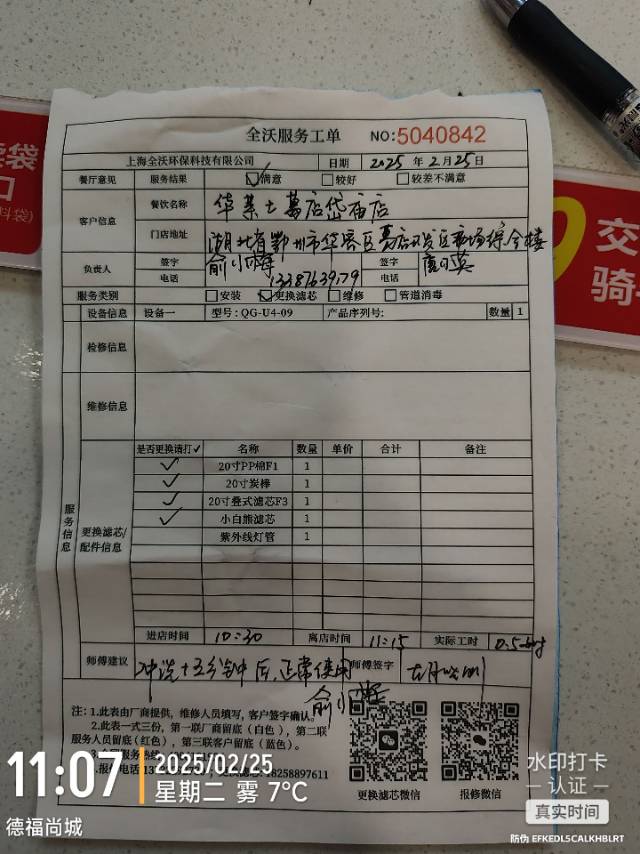 全沃服务工单 NO:5040842
上海全沃环保科技有限公司 日期 2025年2月25日
餐厅意见 服务结果 满意 较好 较差不满意
客户信息 餐饮名称 华莱士葛店岱庙店
门店地址 湖北省鄂州市华容区葛店开发区市场综合楼
负责人 签字 签字
电话 13387639179 电话
服务类别 安装 更换滤芯 维修 管道消毒
设备信息 设备一 型号:QG-U4-09 产品序列号: 数量 1
检修信息
维修信息
服务信息
更换滤芯/配件信息
是否更换请打✓ 名称 数量 单价 合计 备注
✓ 20寸PP棉F1 1
✓ 20寸炭棒 1
✓ 20寸叠式滤芯F3 1
✓ 小白熊滤芯 1
紫外线灯管 1
进店时间 10:30 离店时间 11:15 实际工时 0.5
师傅建议 冲洗十五分钟后,正常使用 师傅签字
注: 1.此表由厂商提供,维修人员填写,客户签字确认。
2.此表一式三份,第一联厂商留底(白色),第二联
服务人员留底(红色),第三联客户留底(蓝色)。
18258897611
更换滤芯微信 报修微信
11:07 2025/02/25
星期二 雾 7℃
德福尚城
水印打卡
认证
真实时间
防伪 EFKEDL5CALKHBLRT
袋
口
料袋)
交
骑